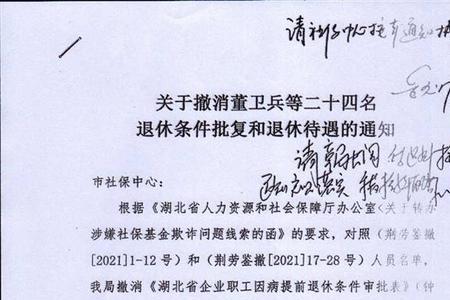 请社保中心按市通知
关于撤消董卫兵等二十四名
退休条件批复和退休待遇的通知
市社保中心:
根据《湖北省人力资源和社会保障厅办公室<关于转办
涉嫌社保基金欺诈问题线索的函》的要求,对照(荆劳鉴撤
[2021]1-12号)和(荆劳鉴撤[2021]17-28号)人员名单,
我局撤消《湖北省企业职工因病提前退休条件审批表》(钟